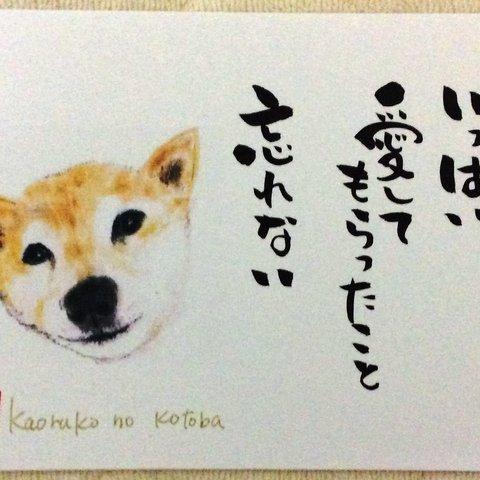 いっぱい
愛して
もらったこと
忘れない
Kaoruko no Kotoba